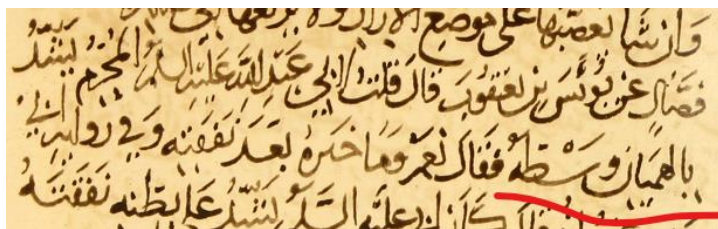 وان شا يعصبها على موضع الازار ولا يرفعها
فضال عن يونس بن يعقوب قال قلت لابي عبد الله عليه السلم المحرم يشد
بالهميان وسطه فقال نعم وما خيره بعد نفقته وفي رواية ابي
عليه السلم يشد على بطنه نفقته